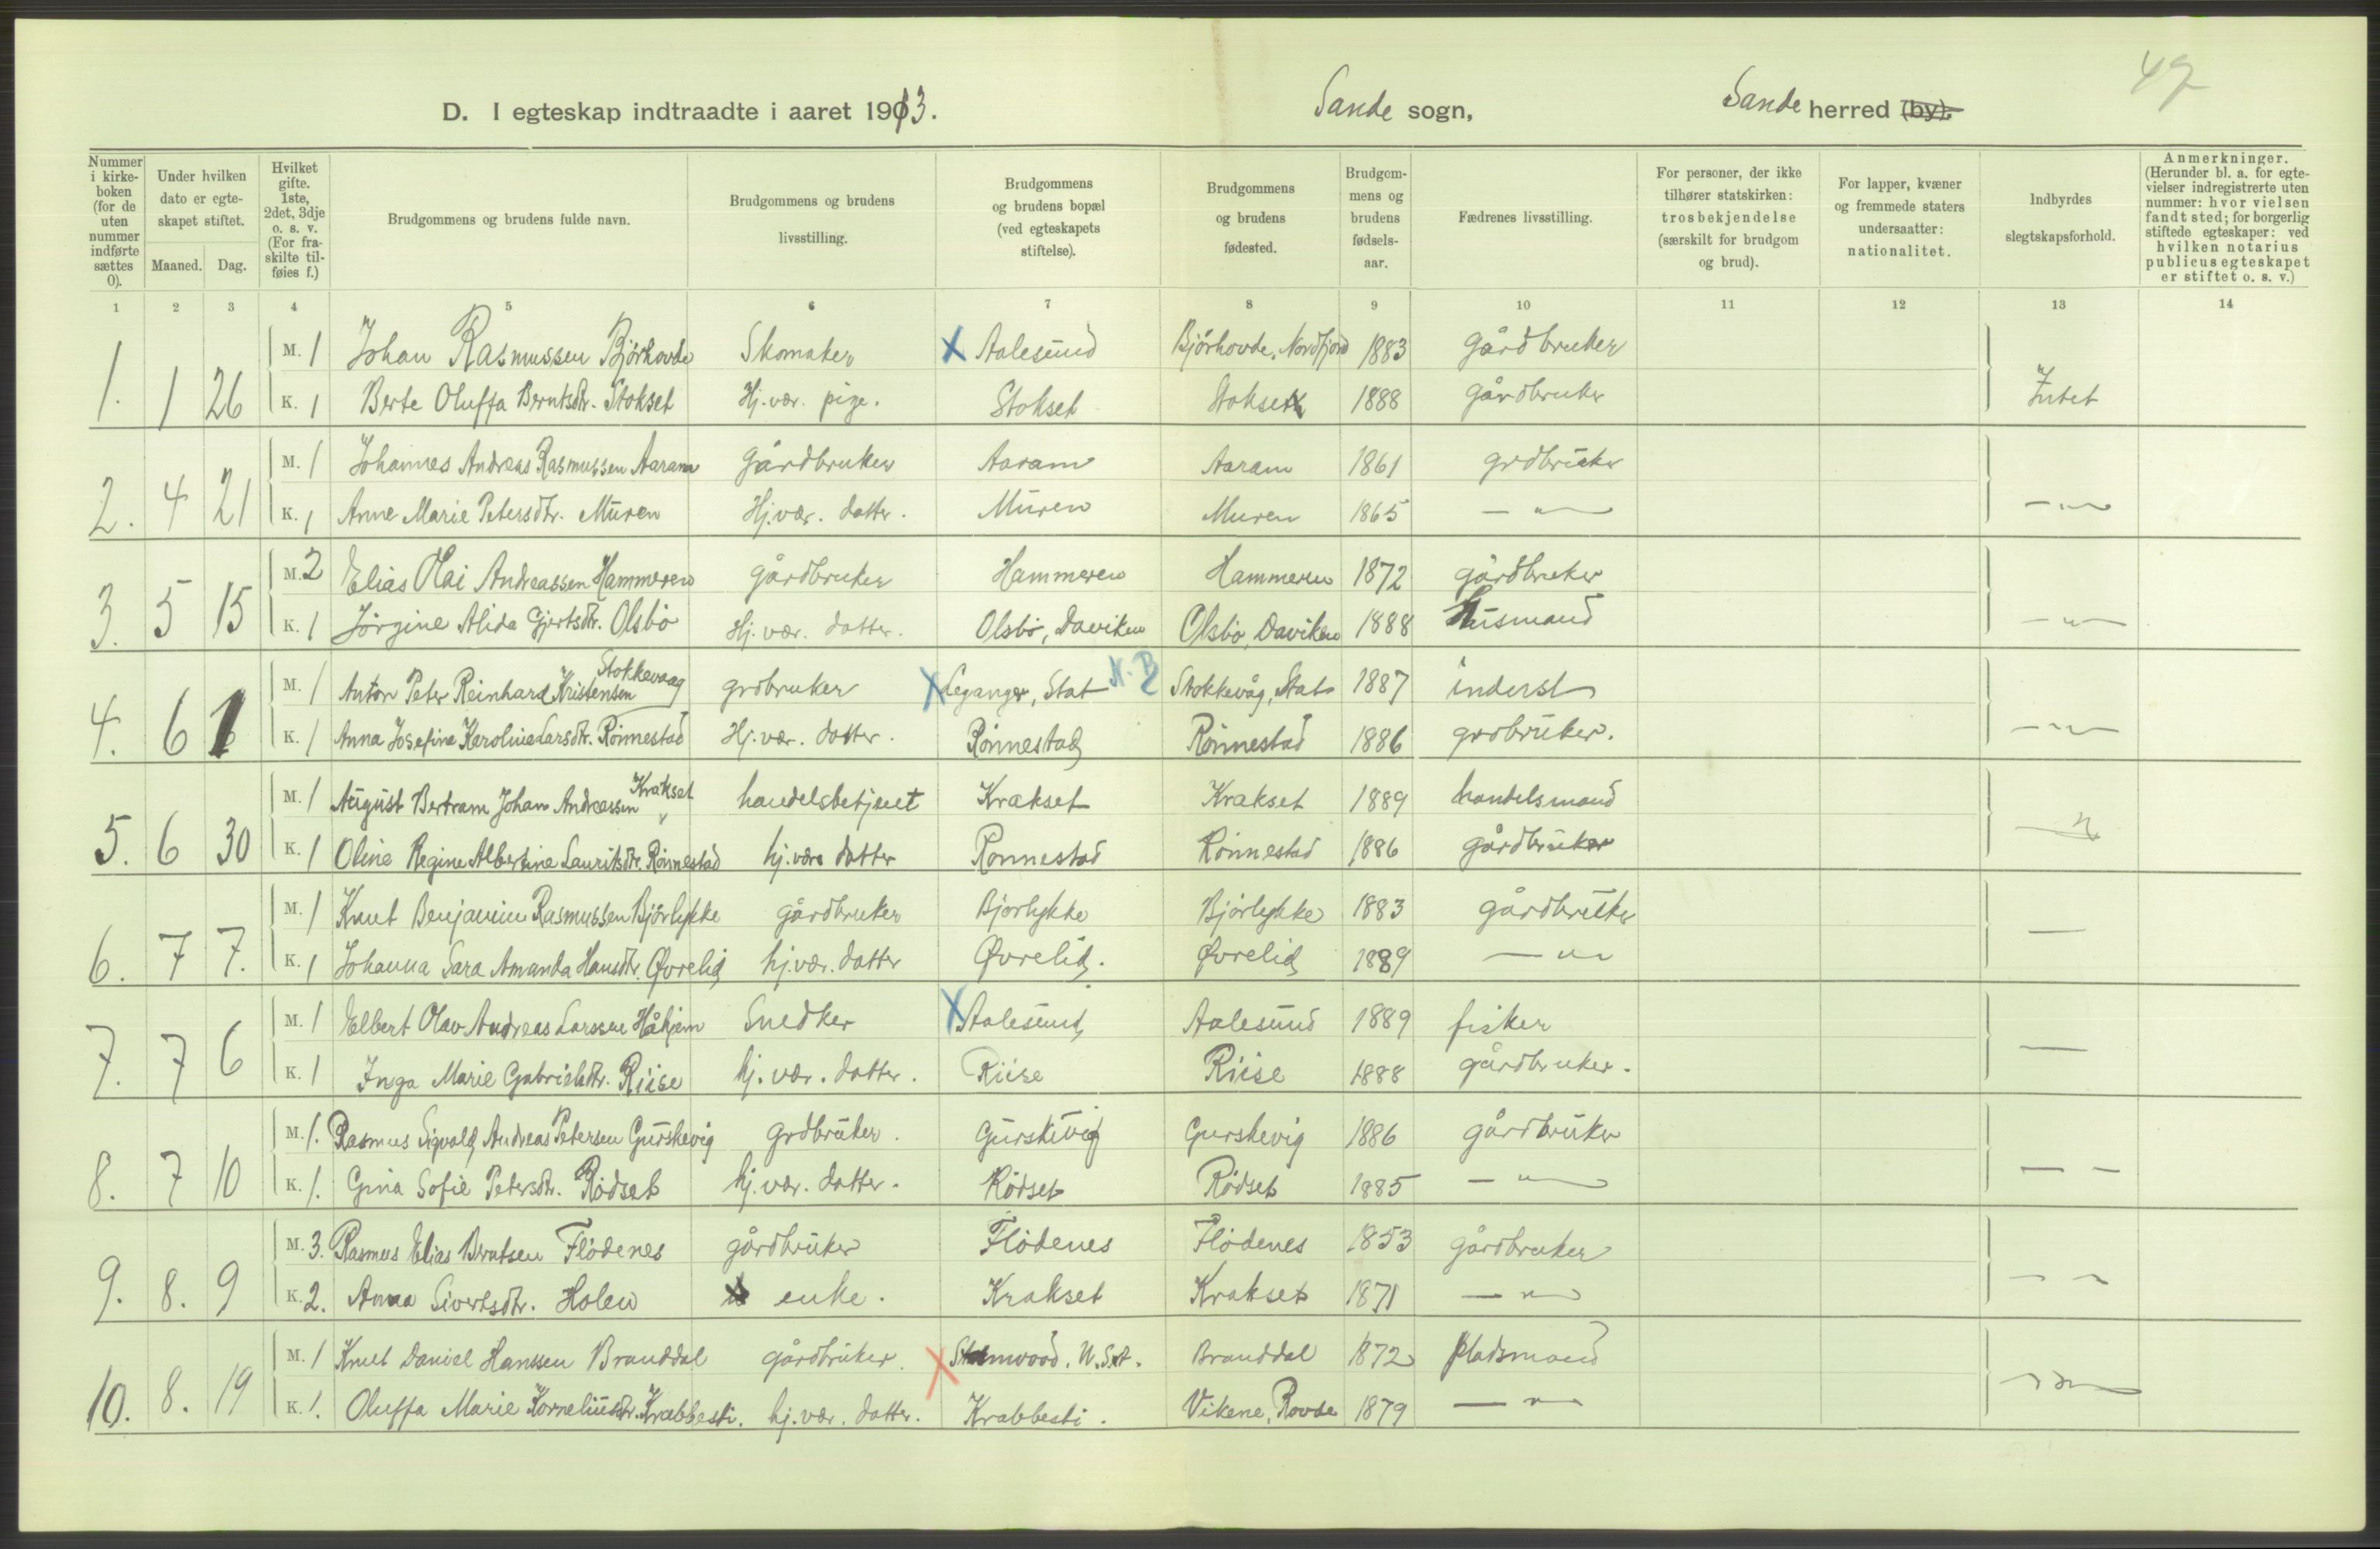 47
D. I egteskap indtraadte i aaret 1913. Sande sogn, Sande herred (by).
Nummer i kirkeboken (for de uten nummer indførte sættes 0).
Under hvilken dato er egteskapet stiftet.
Maaned. Dag.
Hvilket gifte. 1ste, 2det, 3dje o. s. v. (For fraskilte tilføies f.)
Brudgommens og brudens fulde navn.
Brudgommens og brudens livsstilling.
Brudgommens og brudens bopæl (ved egteskapets stiftelse).
Brudgommens og brudens fødested.
Brudgommens og brudens fødselsaar.
Fædrenes livsstilling.
For personer, der ikke tilhører statskirken: trosbekjendelse (særskilt for brudgom og brud).
For lapper, kvæner og fremmede staters undersaatter: nationalitet.
Indbyrdes slegtskapsforhold.
Anmerkninger. (Herunder bl. a. for egtevielser indregistrerte uten nummer: hvor vielsen fandt sted; for borgerlig stiftede egteskaper: ved hvilken notarius publicus egteskapet er stiftet o. s. v.)
1 2 3 4 5 6 7 8 9 10 11 12 13 14
M. 1 Johan Rasmussen Bjørhovde Skomaker X Aalesund Bjørhovde, Nordfjord 1883 gårdbruker
1. 1 26 K. 1 Berte Oluffa Berntsdtr. Stokset Hj. vær. pige. Stokset Stokset 1888 gårdbruker Intet
M. 1 Johannes Andreas Rasmussen Aaram gårdbruker Aaram Aaram 1861 grdbruker
2. 4 21 K. 1 Anne Marie Petersdtr. Muren Hj. vær. datter. Muren Muren 1865 — " — — " —
M. 2 Elias Olai Andreassen Hammeren gårdbruker Hammeren Hammeren 1872 gårdbruker
3. 5 15 K. 1 Jørgine Alida Gjertsdtr. Olsbø Hj. vær. datter. Olsbø, Daviken Olsbø, Daviken 1888 Husmand — " —
Stokkevaag
M. 1 Anton Peter Reinhard Kristensen grdbruker X Leganger, Stat N. B Stokkevåg, Stat 1887 inderst
4. 6 1 K. 1 Anna Josefine Karoline Larsdtr. Rønnestad Hj. vær. datter. Rønnestad Rønnestad 1886 grdbruker. — " —
Krakset
M. 1 August Bertram Johan Andreassen handelsbetjent Krakset Krakset 1889 handelsmand
5. 6 30 K. 1 Oline Regine Albertine Lauritsdtr. Rønnestad hj. vær. datter Rønnestad Rønnestad 1886 gårdbruker — " —
M. 1 Knut Benjamin Rasmussen Bjørlykke gårdbruker Bjørlykke Bjørlykke 1883 gårdbruker
6. 7 7. K. 1 Johanna Sara Amanda Hansdtr. Øvrelid hj. vær. datter Øvrelid. Øvrelid 1889 — " — —
M. 1 Elbert Olav Andreas Larssen Håhjem Snedker X Aalesund Aalesund 1889 fisker
7. 7 6 K. 1 Inga Marie Gabrielsdtr. Riise hj. vær. datter. Riise Riise 1888 gårdbruker. —
M. 1. Rasmus Sigvald Andreas Petersen Gurskevig grdbruker. Gurskevig Gurskevig 1886 gårdbruker
8. 7 10 K. 1. Gina Sofie Petersdtr. Rødset hj. vær. datter. Rødset Rødset 1885 — " — — —
M. 3. Rasmus Elias Berntsen Flødenes gårdbruker Flødenes Flødenes 1853 gårdbruker
9. 8. 9 K. 2. Anna Sivertsdtr. Holen enke. Krakset Krakset 1871 — " — — "
M. 1 Knut Daniel Hanssen Branddal gårdbruker. X Stanwood. U. S. A. Branddal 1872 pladsmand
10. 8. 19 K. 1. Oluffa Marie Korneliusdtr. Krabbesti. hj. vær. datter. Krabbesti. Vikene, Rovde 1879 — " — — " —